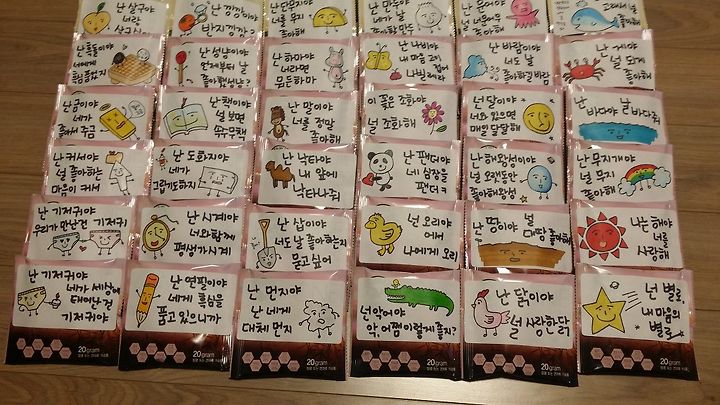 난 살구야
너랑
살구싶
난 깡깡이야
반지깡깡?
난 단무지야
너를 무지
좋아해
난 만두야
네가 날
좋아할만두
난 문어야
좋아해
고래서 널
좋아해
난 흑돌이야
네에게
푹 빠졌지
난 성냥이야
언제부터 날
좋아했성냥?
난 하마야
너라면
뭐든하마
난 나비야
내 마음 고이
접어
나빌레라
난 바람이야
너도 날
좋아하길바람
난 게야
널 되게
좋아해
난 궁이야
네가
좋아서 궁금
난 책이야
널 보면
속수무책
난 말이야
너를 정말
좋아해
이 꽃은 조화야
널 조화해
넌 달이야
너와 있으면
매일 달달해
난 바다야 날
바다줘
난 커서야
널 좋아하는
마음이 커서
난 도화지야
네가
그립기도하지
난 낙타야
내 앞에
낙타나줘
난 팬더야
네 심장을
팬더ㅋ
난 해왕성이야
널 오랫동안
좋아해왕성
난 무지개야
널 무지
좋아해
난 기저귀야
우리가 만난건 기저귀
난 시계야
너와함께
평생가시계
난 삽이야
너도 날 좋아하는지
묻고싶어
넌 오리야
어서
나에게 오리
난 땅이야 널
매땅좋아해
난 해야
너를
사랑해
난 기저귀야
네가 세상에
태어난건
기저귀야
난 연필이야
네게 흑심을
품고 있으니까
난 먼지야
난 네게
대체 먼지
넌 악어야
악, 어쩜 이렇게 좋지?
난 닭이야
널 사랑한닭
넌 별로
내 마음의
별로
20gram
20gram
20gram
20gram
20gram
20gram